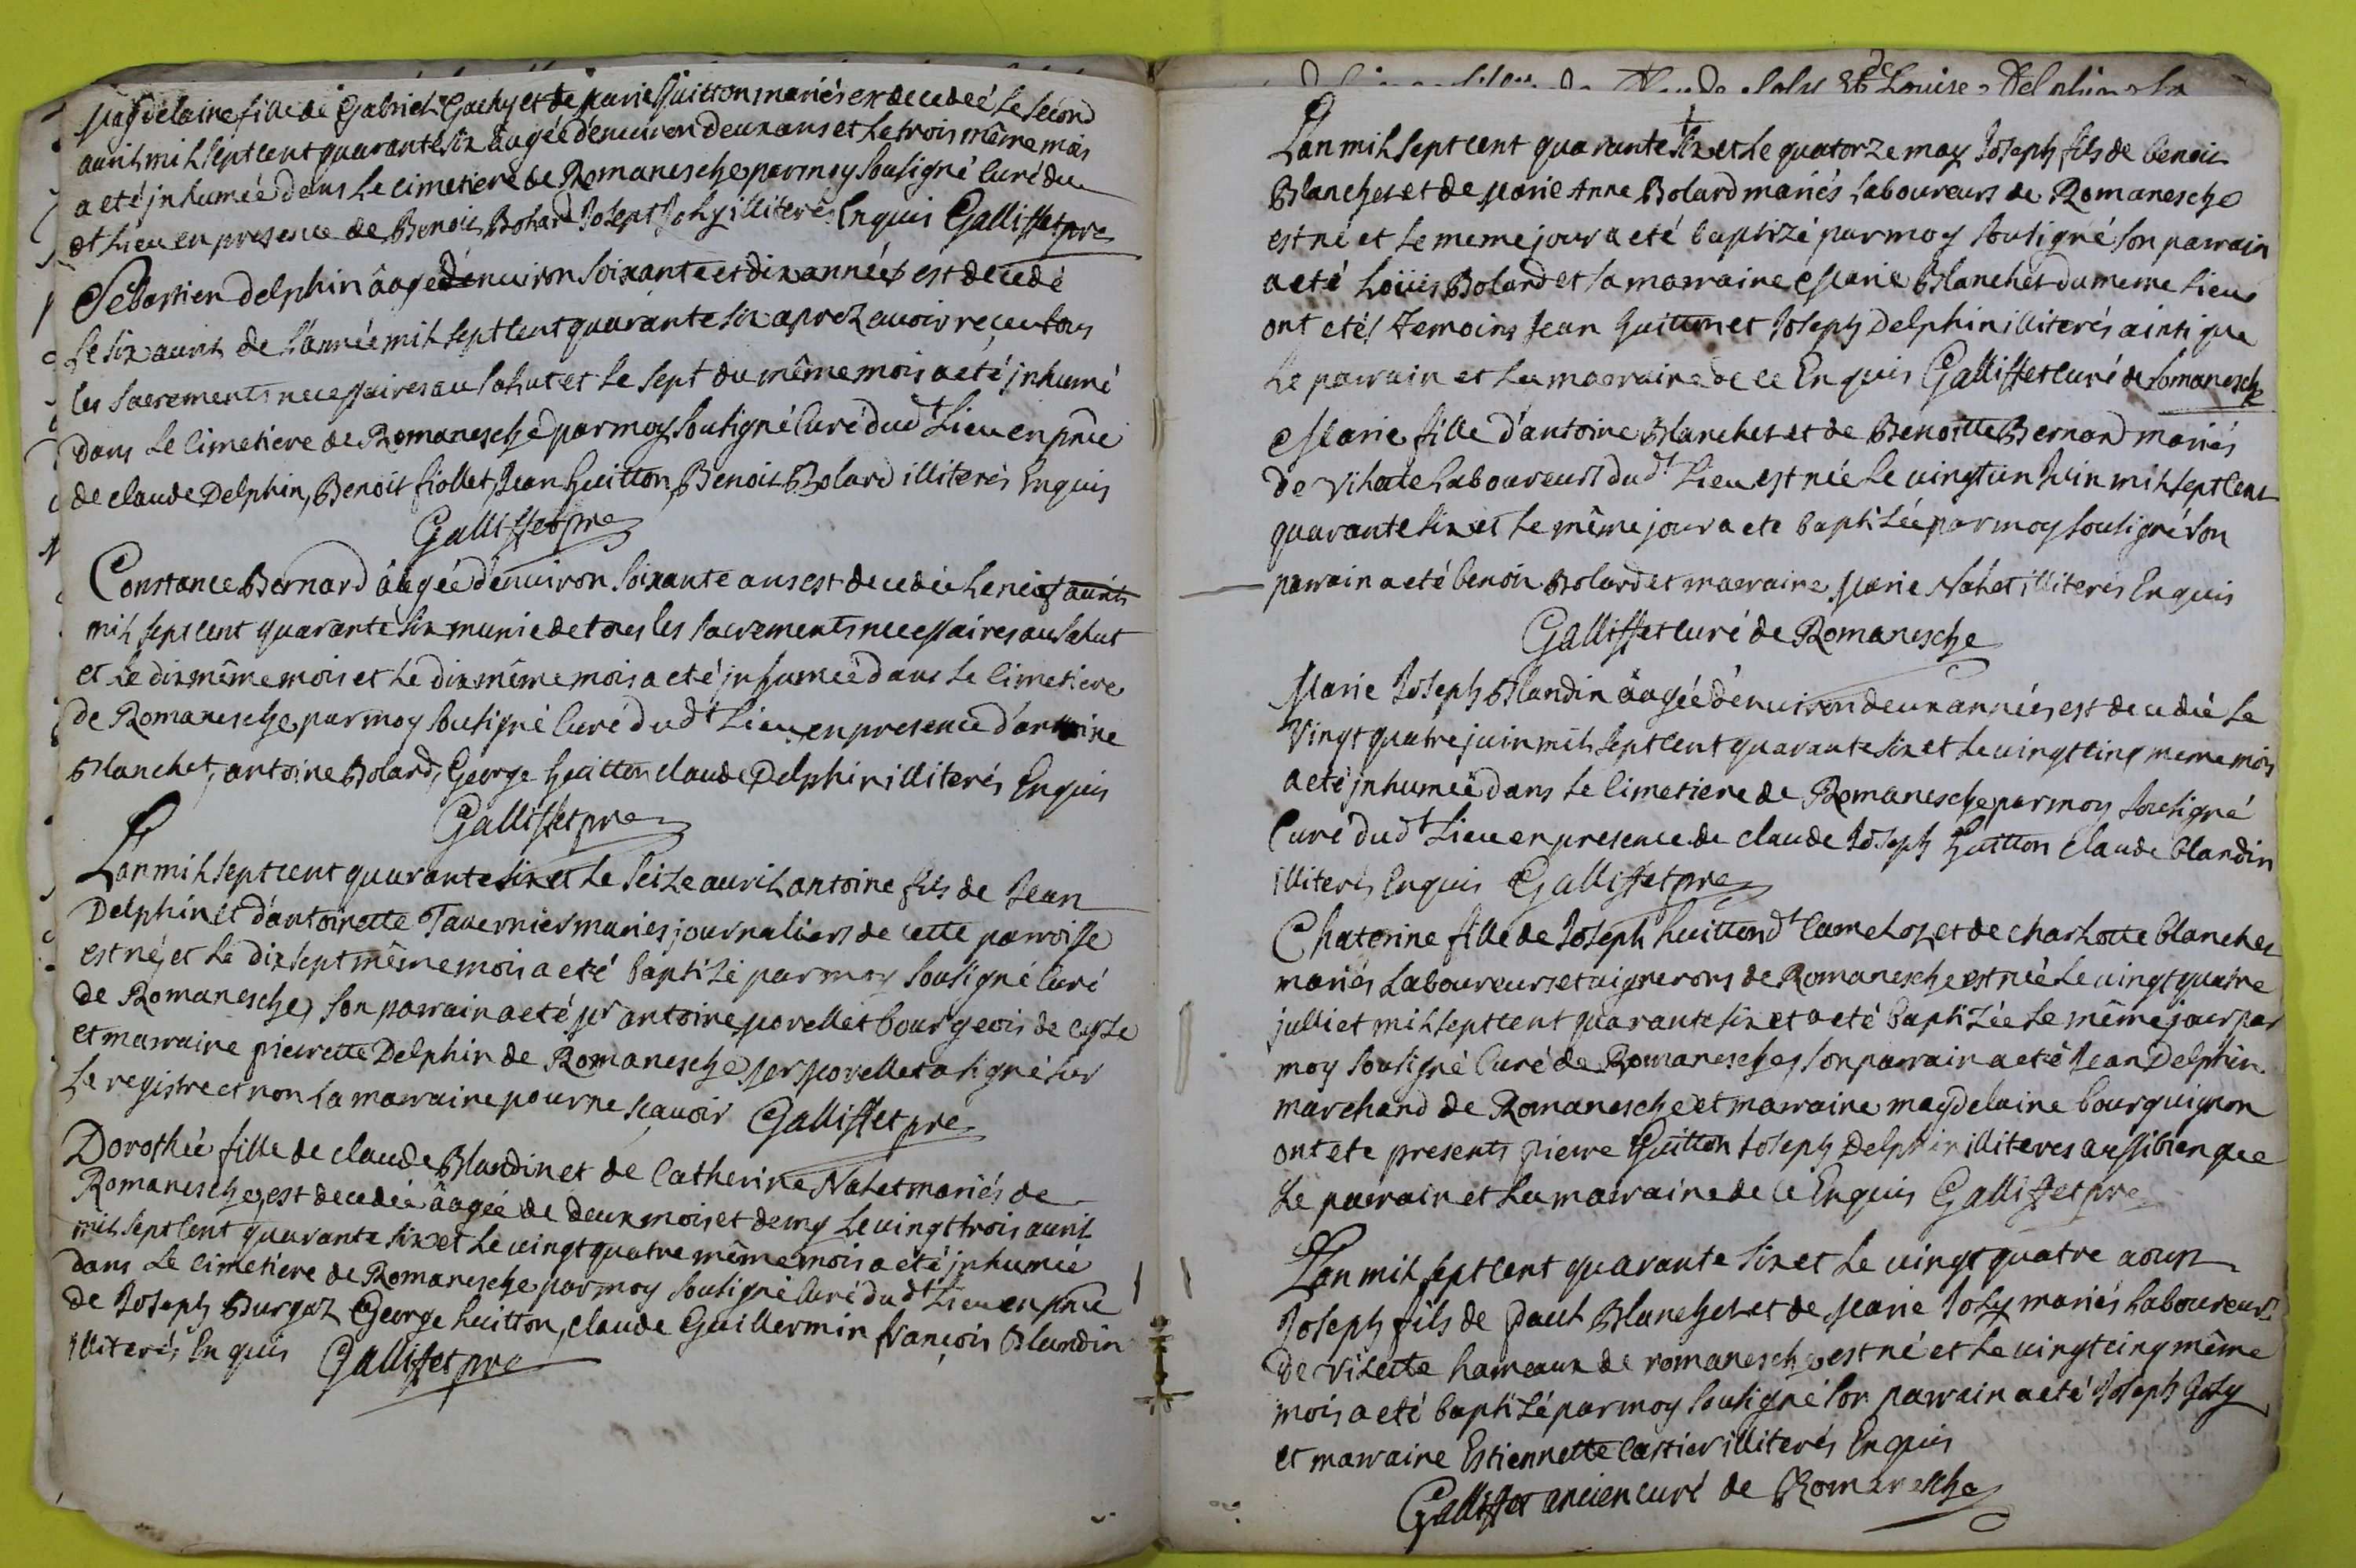 Magdelaine fille de Gabriel Gachy et de marie Guitton mariés est decedeé le second
auril mil sept cent quarante six âagée d'enuiron deux ans et le trois même mois
a eté jnhumée dans le cimetiere de Romanesche par moy sousigné Curé du
dt Lieu en presence de Benoit Bolard Josept Joly illiterés Enquis Galliffet pre
Sebastien Delphin âagé d'enuiron soixante et dix années est decedé
le six auril de l'année mil sept cent quarante six aprez auoir reçeu tous
les sacrements necessaires au salut et le sept du même mois a eté jnhumé
dans le Cimetiere de Romanesche par moy sousigné Curé dudt Lieu en pnce
de claude Delphin, Benoit fiollet, Jean Guitton, Benoit Bolard illiterés Enquis
Galliffet pre
Constance Bernard âagée d'enuiron soixante ans est decedée le neuf auril
mil sept cent quarante six munie de tous les sacrements necessaires au salut
et le dix même mois et le dix même mois a eté jnhumeé dans le Cimetiere
de Romanesche par moy sousigné Curé dudt Lieu en presence d'antoine
Blanchet, antoine Bolard, George Guitton claude Delphin illiterés Enquis
Galliffet pre
Lan mil sept cent quarante six et le seize auril antoine fils de Jean
Delphin et d'antoinette Tavernier mariés journaliers de cette parroisse
est né, et le dix sept même mois a eté baptisé par moy sousigné Curé
de Romanesche, son parrain a eté sr antoine morellet bourgeois de
et marraine pierrette Delphin de Romanesche sr morellet a signé sur
le registre et non la marraine pour ne sçauoir Galliffet pre
Dorothée fille de claude Blandin et de Catherine Nalet mariés de
Romanesche, est decedée âagée de deux mois et demy le uingt trois auril
mil sept cent quarante six et le uingt quatre même mois a eté jnhumée
dans le cimétiére de Romanesche par moy sousigné Curé dudt Lieu en pnce
de Joseph Burgaz George huitton, claude Guillermin françois Blandin
illiterés Enquis Galliffet pre
Lan mil sept cent quarante six et le quatorze may Joseph fils de benoit
Blanchet et de marie Anne Bolard mariés laboureurs de Romanesche
est né et le meme jour a eté baptizé par moy sousigné son parrain
a eté Loüis Bolard et la marraine marie Blanchet du meme lieu
ont eté temoins Jean Guitton et Joseph Delphin illiterés ainsi que
le parrain et la marraine de ce Enquis Galliffet curé de Romanesche
marie fille d'antoine Blanchet et de Benoitte Bernard mariés
de Vilate laboureurs dudt Lieu est née le uingt un Juin mil sept cent
quarante six et le même jour a ete baptisée par moy sousigné son
parrain a eté benoit Bolard et marraine marie Nalet illiterés Enquis
Galliffet curé de Romanesche
marie Joseph Blandin âagée d'enuiron deux années est decedée le
Vingt quatre juin mil sept cent quarante six et le uingt cinq meme mois
a eté jnhumeé dans le Cimetiere de Romanesche par moy sousigné
Curé dudt Lieu en presence de claude Joseph Guitton claude blandin
illiterés Enquis Galliffet pre
Chaterine fille de Joseph huitton dt Cameloz et de charlotte blanchet
mariés laboureurs et uignerons de Romanesche est neé le uingt quatre
julliet mil sept cent quarante six et a eté baptizée le même jour par
moy sousigné Curé de Romanesche, son parrain a eté Jean Delphin
marchand de Romanesche et marraine magdelaine bourguignon
ont ete presents pierre Guitton Joseph Delphin illiteres aussi bien que
le parrain et la marraine de ce Enquis Galliffet pre
Lan mil sept cent quarante six et le uingt quatre aoust
Joseph fils de paul Blanchet et de marie Joly mariés laboureurs
de Vilette hameaux de romanesche est né et le uingt cinq même
mois a eté baptisé par moy sousigné son parrain a eté Joseph Joly
et marraine Estiennette Cartier illiterés Enquis
Galliffet ancien curé de Romanesche